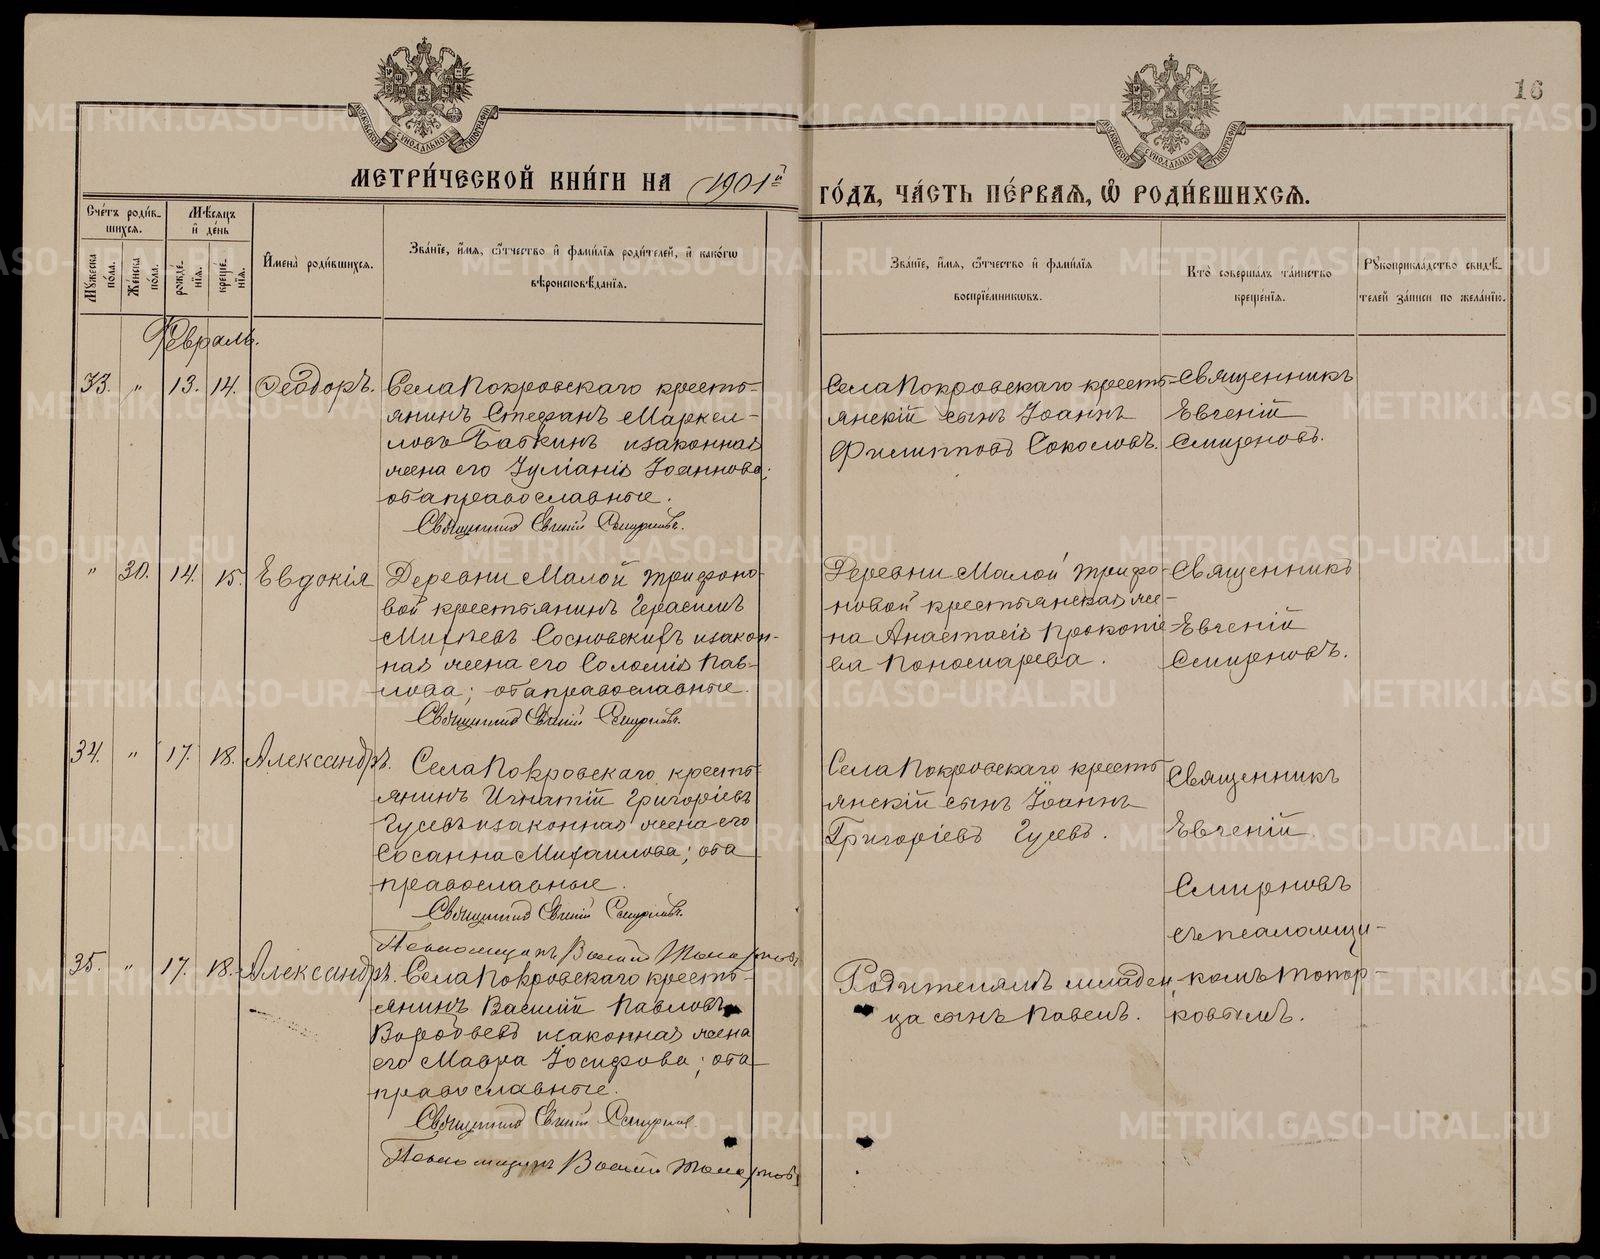 16
МОСКОВСКОЙ СѴНОДАЛЬНОЙ ТИПОГРАФІИ
МОСКОВСКОЙ СѴНОДАЛЬНОЙ ТИПОГРАФІИ
МЕТРИ́ЧЕСКОЙ КНИ́ГИ НА 1901й
ГО́ДЪ, ЧА́СТЬ ПЕ́РВАѦ, Ѽ РОДИ́ВШИХСѦ.
Сче́тъ роди́в-
шихсѧ.
Мꙋ́жеска
по́ла.
Же́нска
по́ла.
Мѣ́сѧцъ
и҆ де́нь
рожде́-
нїѧ.
креще́-
нїѧ.
И҆мена̀ роди́вшихсѧ.
Зва́нїе, и҆́мѧ, ѻ҆́тчество и҆ фами́лїѧ роди́телей, и҆ како́гѡ
вѣроисповѣ́данїѧ.
Зва́нїе, и҆́мѧ, ѻ҆́тчество и҆ фами́лїѧ
воспрїе́мникѡвъ.
Кто̀ соверша́лъ та́инство
креще́нїѧ.
Рꙋкоприкла́дство свидѣ́-
телей за́писи по жела́нїю.
Февраль.
33. " 13. 14. Ѳеодоръ. Села Покровскаго кресть-
янинъ Стефанъ Маркел-
ловъ Бабкинъ и законная
жена его Іуліанія Іоаннова;
оба православные.
Священникъ Евгеній Смирновъ.
Села Покровскаго кресть-
янскій сынъ Іоаннъ
Филипповъ Соколовъ.
Священникъ
Евгеній
Смирновъ.
" 30. 14. 15. Евдокія Деревни Малой Трифоно-
вой крестьянинъ Герасимъ
Михѣевъ Сосновскихъ и закон-
ная жена его Соломія Пав-
лова; оба православные.
Священникъ Евгеній Смирновъ.
Деревни Малой Трифо-
новой крестьянская же-
на Анастасія Прокопіе-
ва Пономарева.
Священникъ
Евгеній
Смирновъ.
34. " 17. 18. Александръ. Села Покровскаго кресть-
янинъ Игнатій Григоріевъ
Гусевъ и законная жена его
Сосанна Михаилова; оба
православные.
Священникъ Евгеній Смирновъ.
Псаломщикъ Василій Топорковъ
Села Покровскаго кресть-
янскій сынъ Іоаннъ
Григоріевъ Гусевъ.
Священникъ
Евгеній
Смирновъ
съ псаломщи-
комъ Топор-
ковымъ.
35. " 17. 18. Александръ. Села Покровскаго кресть-
янинъ Василій Павловъ
Воробьевъ и законная жена
его Мавра Іосифова; оба
православные.
Священникъ Евгеній Смирновъ.
Псаломщикъ Василій Топорковъ
Родителямъ младен-
ца сынъ Павелъ.
METRIKI.GASO-URAL.RU